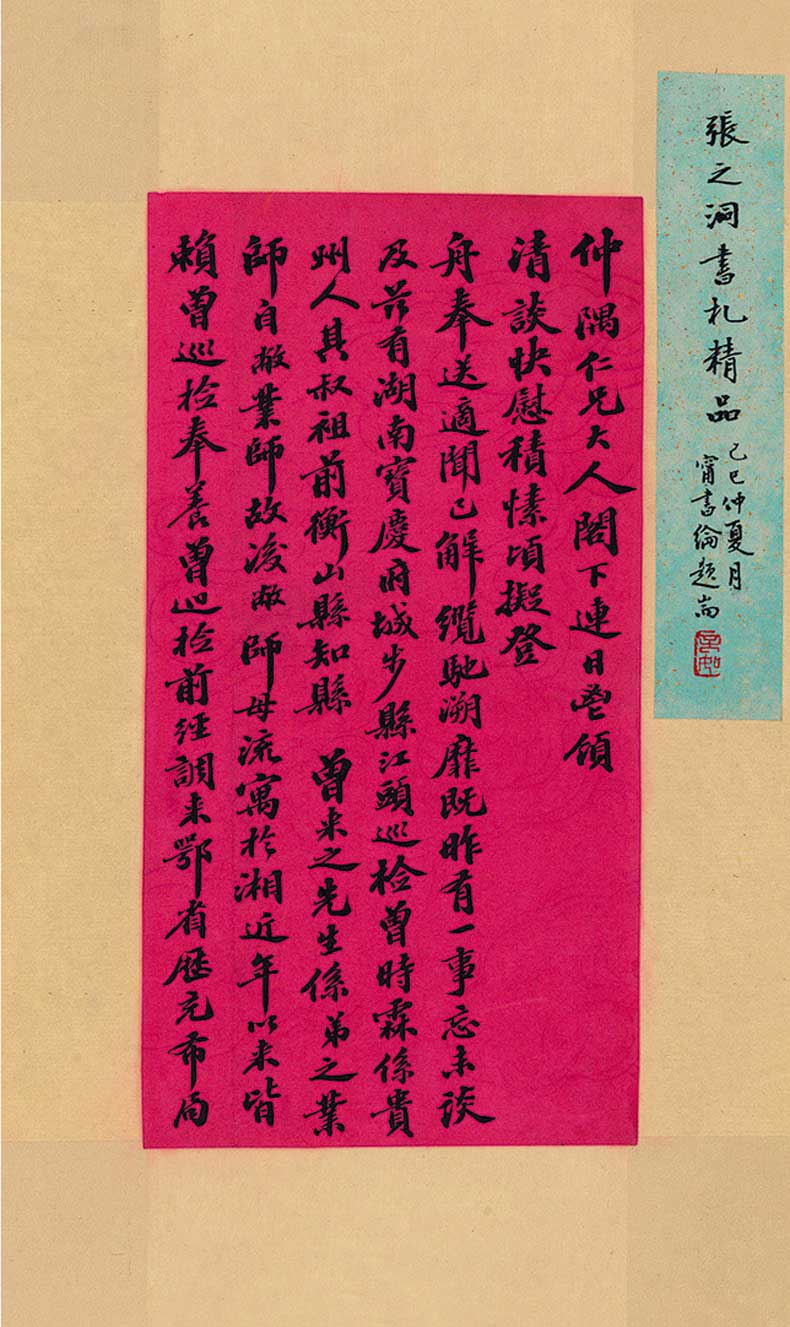 張之洞書札精品
己巳仲夏月
甯書綸題耑
仲隅仁兄大人閣下連日鬯領
清談快慰積愫頃擬登
舟奉送適聞已解纜馳溯靡既昨有一事忘未談
及茲有湖南寶慶府城步縣江頭巡檢曾時霖係貴
州人其叔祖前衡山縣知縣　曾耒之先生係弟之業
師自敝業師故後敝師母流寓於湘近年以來皆
賴曾巡檢奉養曾巡檢前經調來鄂省歷充布局